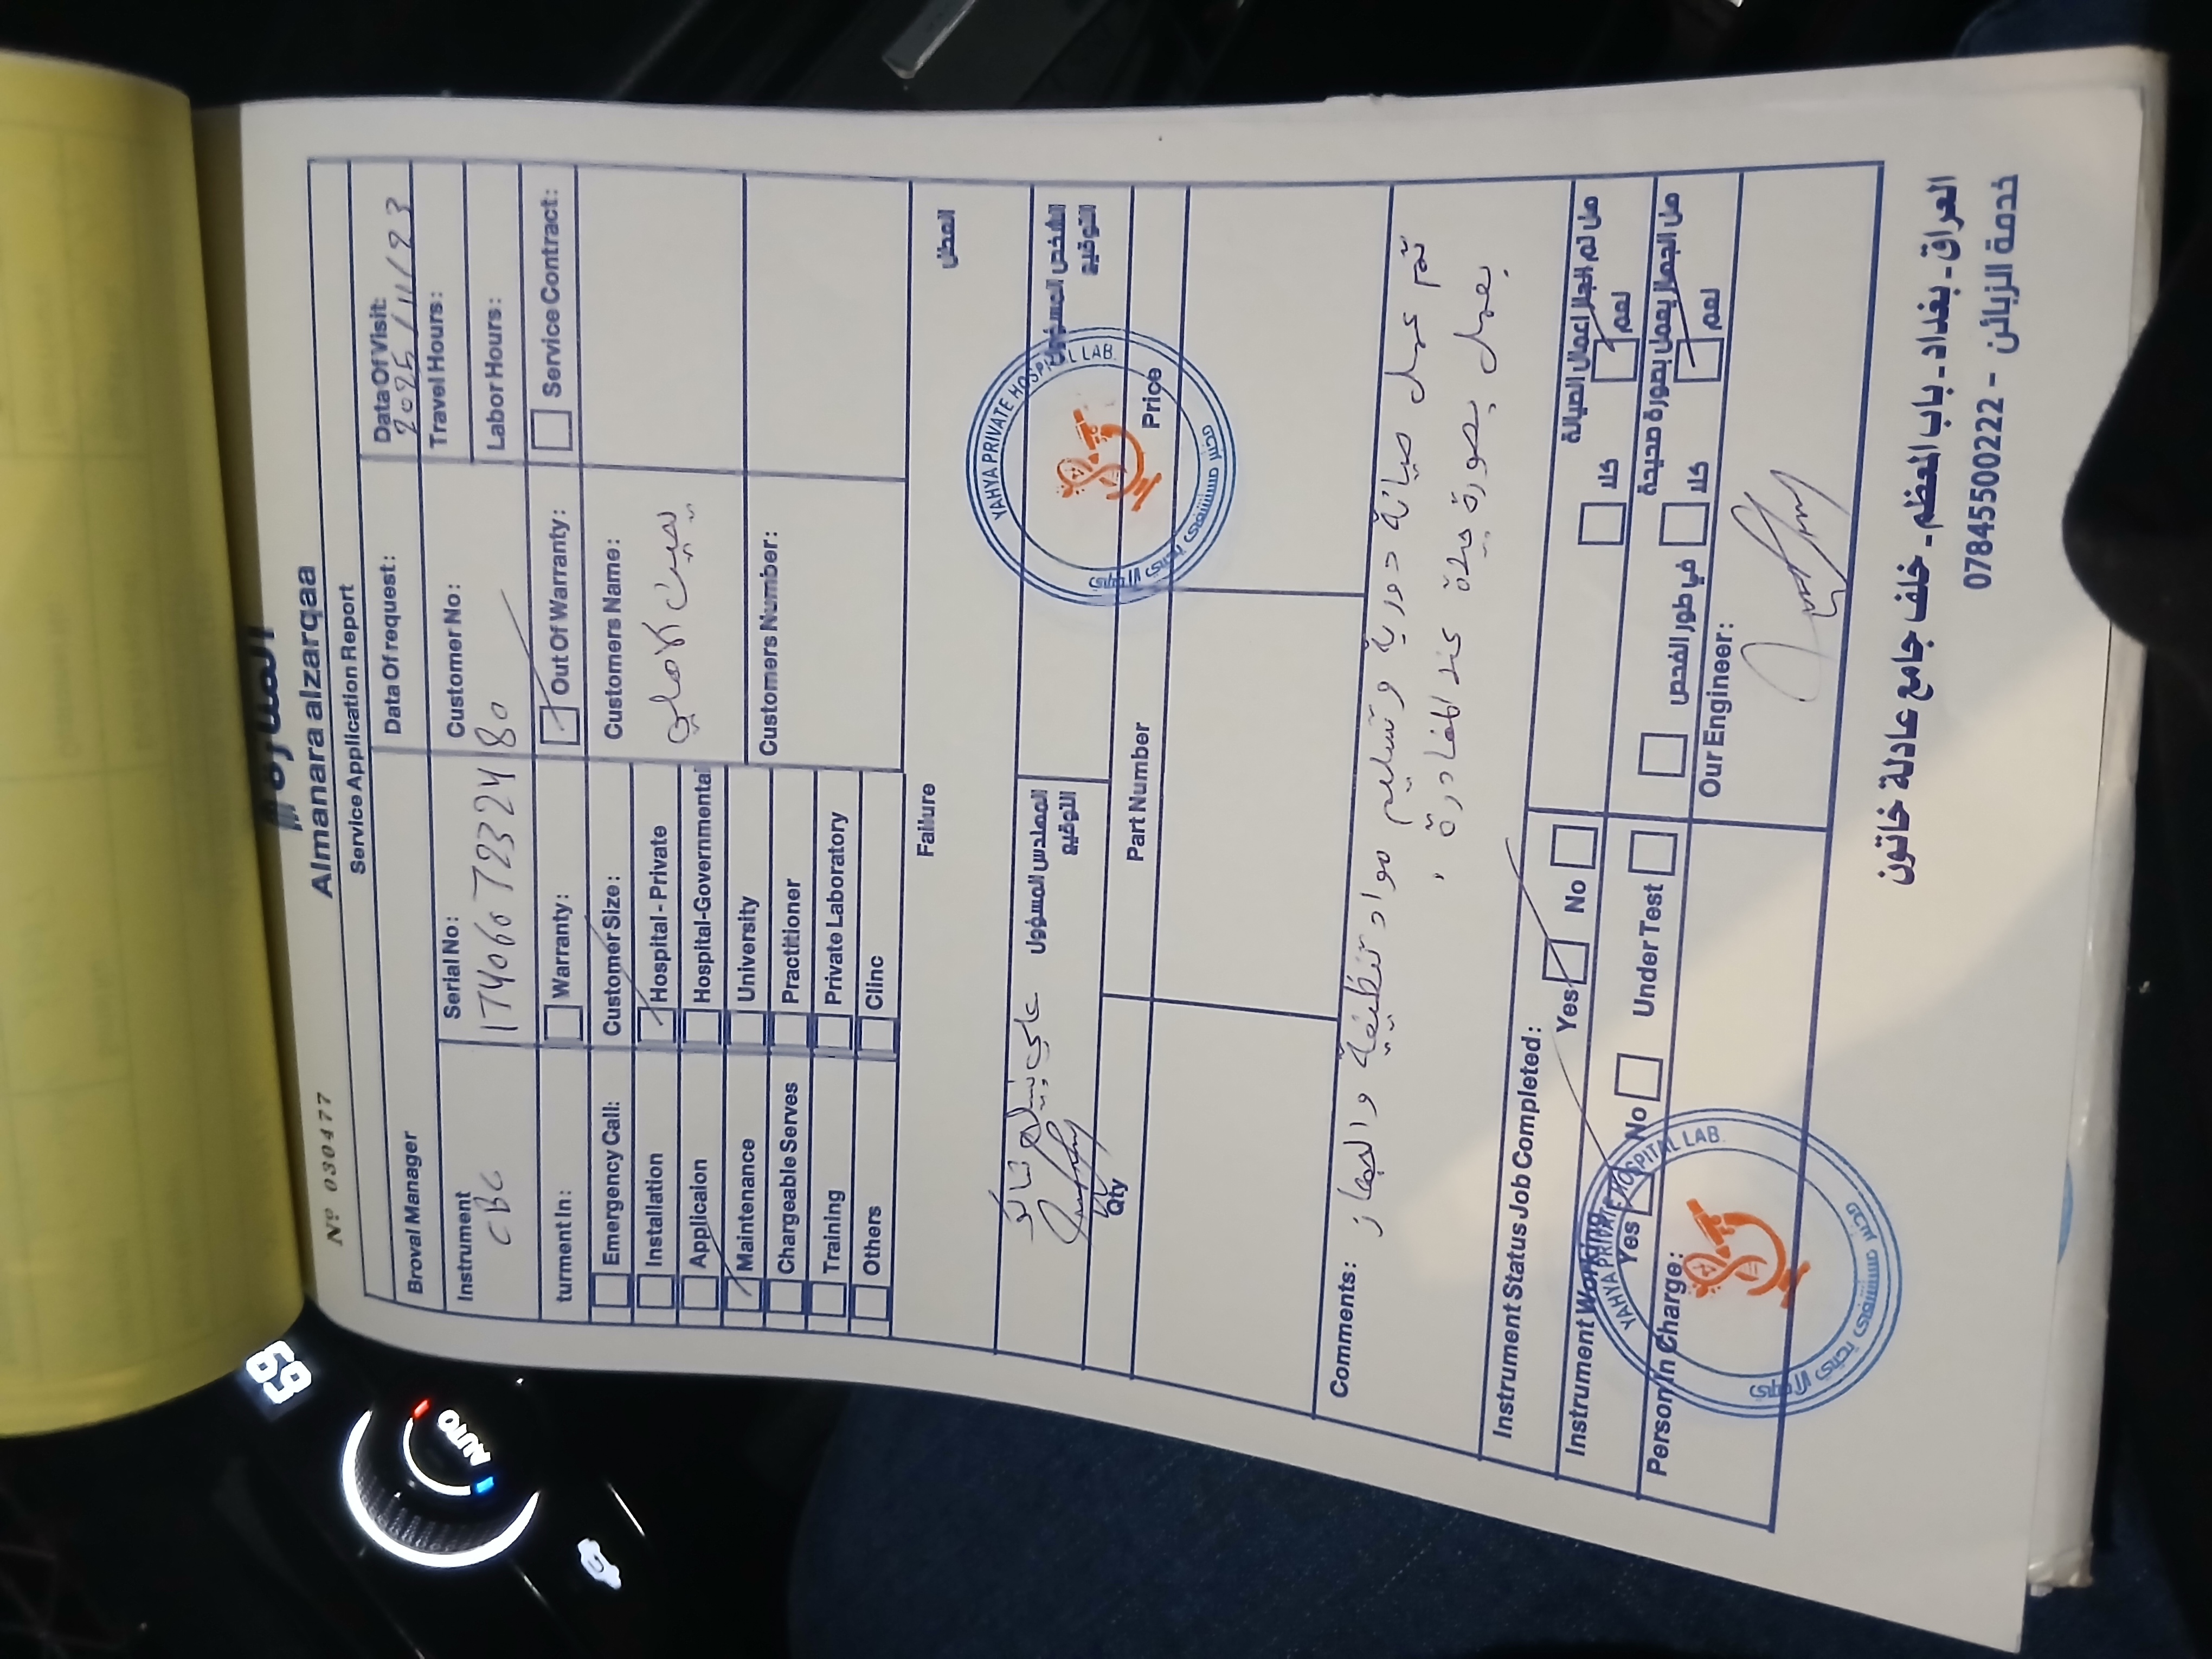 Nº 030477
Almanara alzarqaa
Service Application Report
Broval Manager
Data Of request:
Data Of Visit:
2025/11/23
Travel Hours:
Labor Hours:
Instrument
CBC
Serial No:
Customer No:
turment In:
Warranty:
Out Of Warranty:
Service Contract:
Emergency Call:
Installation
Applicaion
Maintenance
Chargeable Serves
Training
Others
Customer Size:
Hospital - Private
Hospital-Governmental
University
Practitioner
Private Laboratory
Clinc
Customers Name:
Customers Number:
Failure
العطل
علي
المهندس المسؤول
التوقيع
الشخص المسؤول
التوقيع
YAHYA PRIVATE HOSPITAL LAB.
Qty
Part Number
Price
Comments:
تم عمل صيانة دورية وتسليم مواد تنظيفية والجهاز
يعمل بصورة جيدة عند المغادرة
Instrument Status Job Completed:
Yes
No
هل تم انجاز اعمال الصيانة
كلا
نعم
Instrument Working:
Yes
No
Under Test
هل الجهاز يعمل بصورة صحيحة
في طور الفحص
كلا
نعم
Person in Charge:
Our Engineer:
YAHYA PRIVATE HOSPITAL LAB.
العراق - بغداد - باب المعظم - خلف جامع عادلة خاتون
خدمة الزبائن - 07845500222
69
AUTO